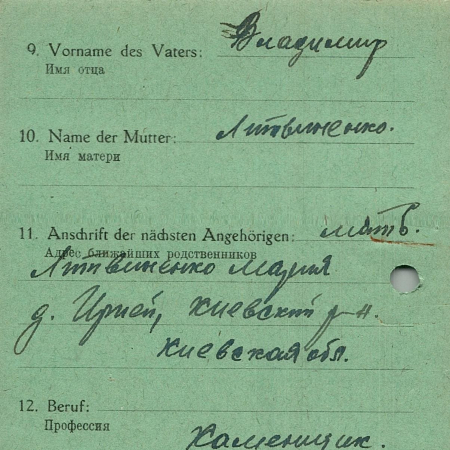 9. Vorname des Vaters: Владимир
Имя отца
10. Name der Mutter: Литвиненко.
Имя матери
11. Anschrift der nächsten Angehörigen: мать.
Адрес ближайших родственников
Литвиненко Мария
д. Ирпей, Киевский р-н.
Киевская обл.
12. Beruf:
Профессия
Каменщик.